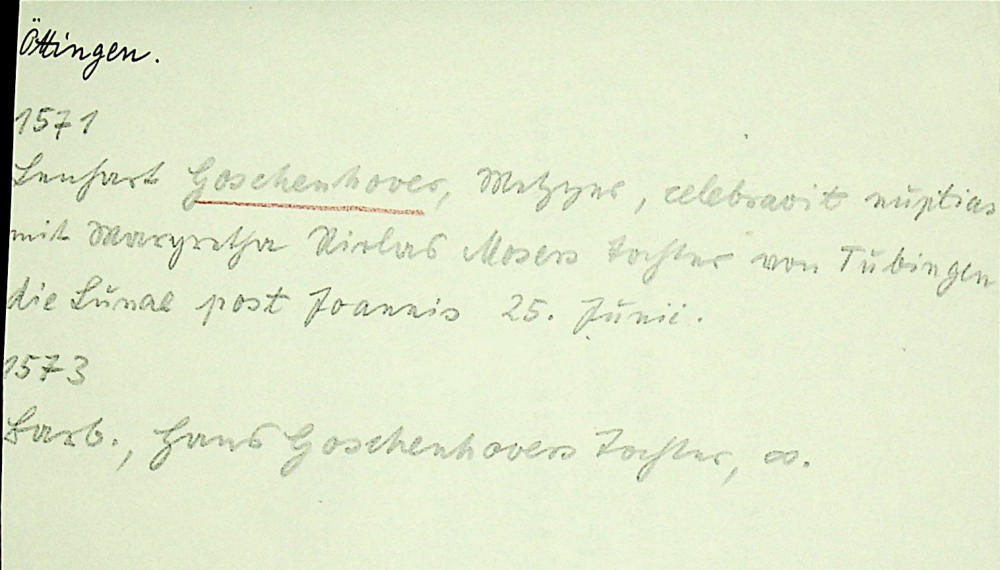 Öttingen.
1571
Lenhart Goschenhover, Metzger, celebravit nuptias
mit Margretha Niclas Mosers tochter von Tübingen
die Lunae post Joannis 25. Junii.
1573
Barb., Hans Goschenhovers Tochter, ∞.